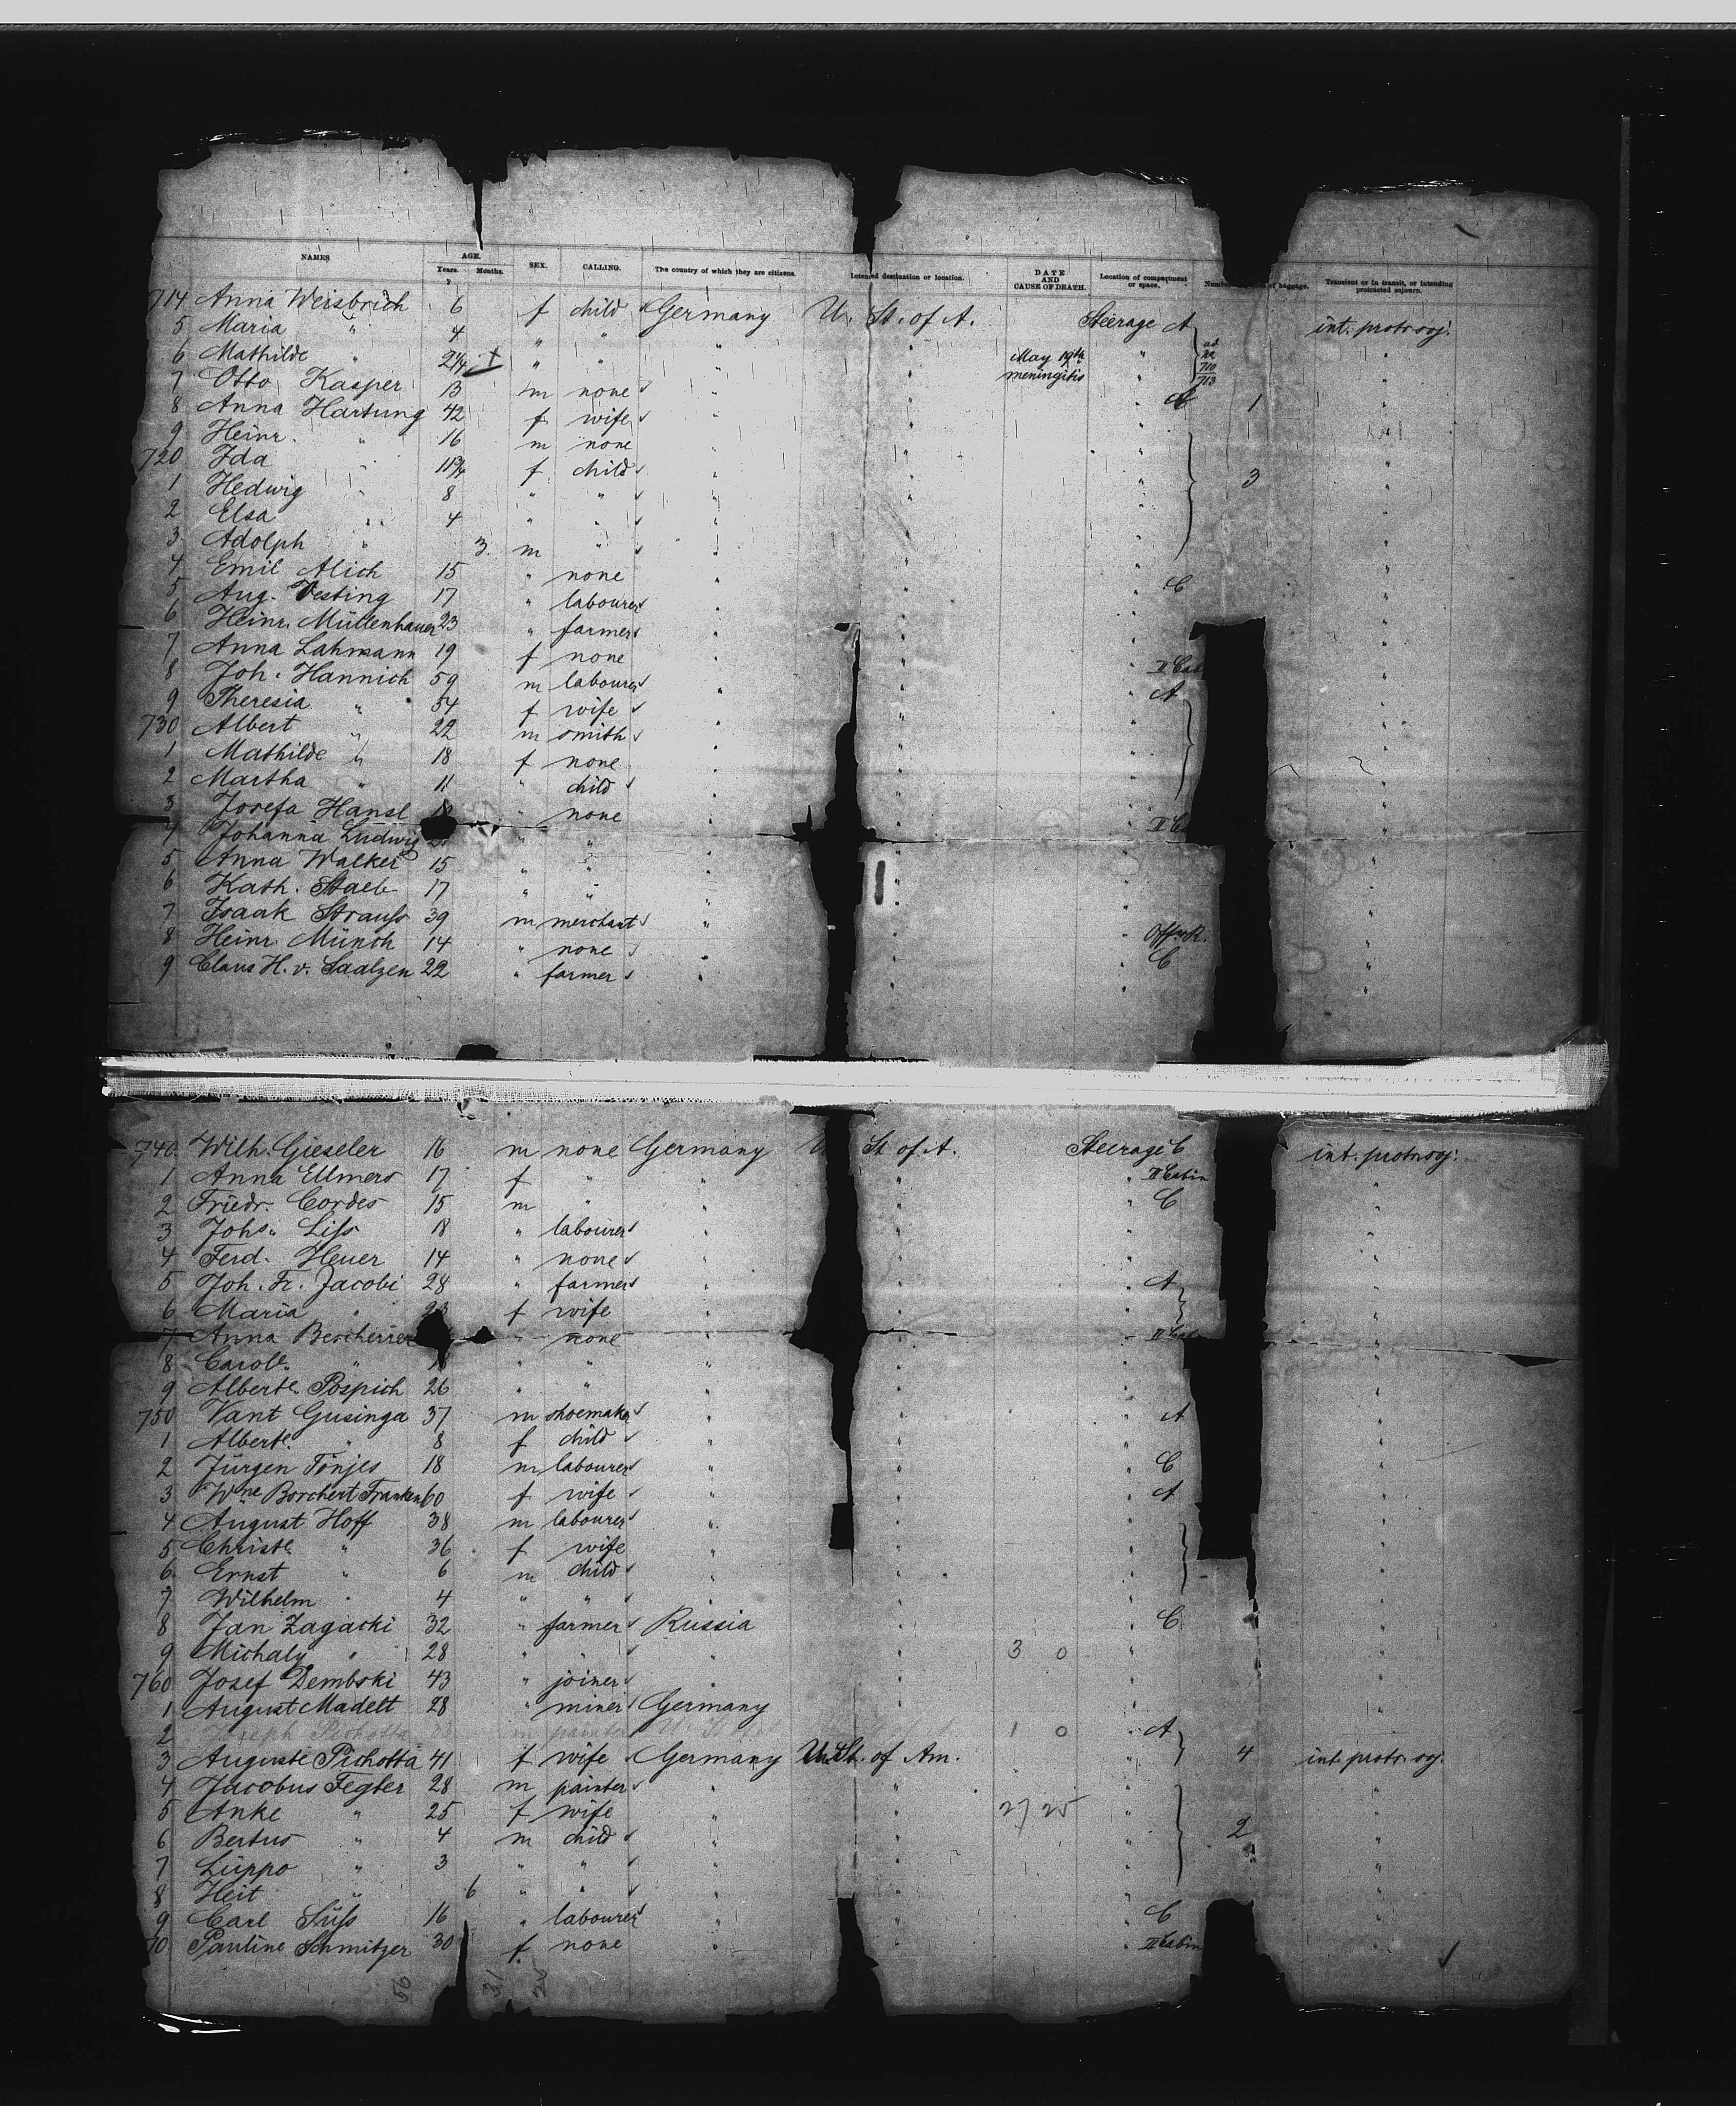 NAMES AGE. Years. Months. SEX. CALLING. The country of which they are citizens. Intended destination or location. DATE AND CAUSE OF DEATH. Location of compartment or space. Number of baggage. Transient or in transit, or intending protracted sojourn.
714 Anna Weisbrich 6 f child Germany U. St. of A. Steerage A int. protr. soj.
5 Maria " 4 " " " " "
6 Mathilde " 2 1/4 + " " " " May 19th meningitis " ad No 710 713 "
7 Otto Kasper 13 m none " " " A 1 "
8 Anna Hartung 42 f wife " " " "
9 Heinr. " 16 m none " " " "
720 Ida " 11 3/4 f child " " " "
1 Hedwig " 8 " " " " " 3 "
2 Elsa " 4 " " " " " "
3 Adolph " 3 m " " " " "
4 Emil Alich 15 " none " " " "
5 Aug. Vesting 17 " labourer " " " C "
6 Heinr. Müllenhauer 23 " farmer " " " "
7 Anna Lahmann 19 f none " " " II Cab "
8 Joh. Hannich 59 m labourer " " " A "
9 Theresia " 54 f wife " " " "
730 Albert " 22 m smith " " " "
1 Mathilde " 18 f none " " " "
2 Martha " 11 " child " " " "
3 Josefa Hansl " none " " " II C "
4 Johanna Ludwig " " " " "
5 Anna Walker 15 " " " " " "
6 Kath. Staeb 17 " " " " " "
7 Isaak Strauss 39 m merchant " " " "
8 Heinr. Münch 14 " none " " " Offz. R. "
9 Claus H. v. Saalzen 22 " farmer " " " C "
740 Wilh. Gieseler 16 m none Germany U St of A. Steerage C int. protr. soj.
1 Anna Ellmers 17 f " " " " II Cabin "
2 Friedr. Cordes 15 m " " " " C "
3 Johs. Liss 18 " labourer " " " "
4 Ferd. Heuer 14 " none " " " "
5 Joh. Fr. Jacobi 28 " farmer " " " A "
6 Maria " 23 f wife " " " "
7 Anna " none " " " II Cab "
8 Carole. " " " " " " "
9 Alberte. Pospich 26 " " " " " "
750 Vant Gusinga 37 m shoemaker " " " A "
1 Alberte. " 8 f child " " " "
2 Jürgen Tönjes 18 m labourer " " " C "
3 Wne Borchert Franken 60 f wife " " " A "
4 August Hoff 38 m labourer " " " "
5 Christe. " 36 f wife " " " "
6 Ernst " 6 m child " " " "
7 Wilhelm " 4 " " " " " "
8 Jan Zagacki 32 " farmer Russia " " C "
9 Michaly " 28 " " " " 3 0 " "
760 Josef Dembski 43 " joiner " " " "
1 August Madelt 28 " miner Germany " " "
2 Joseph Pichotta m painter U. St. 1 0 " A
3 Auguste Pichotta 41 f wife Germany U. St. of Am. " 4 int. protr. soj.
4 Jacobus Fegter 28 m painter " " " "
5 Anke " 25 f wife " " 27 25 " "
6 Bertus " 4 m child " " " 2 "
7 Lüppo " 3 " " " " " "
8 Heit " 6 " " " " " "
9 Carl Süss 16 " labourer " " " C "
70 Pauline Schmitzer 30 f none " " " II Cabin "
56 31 25